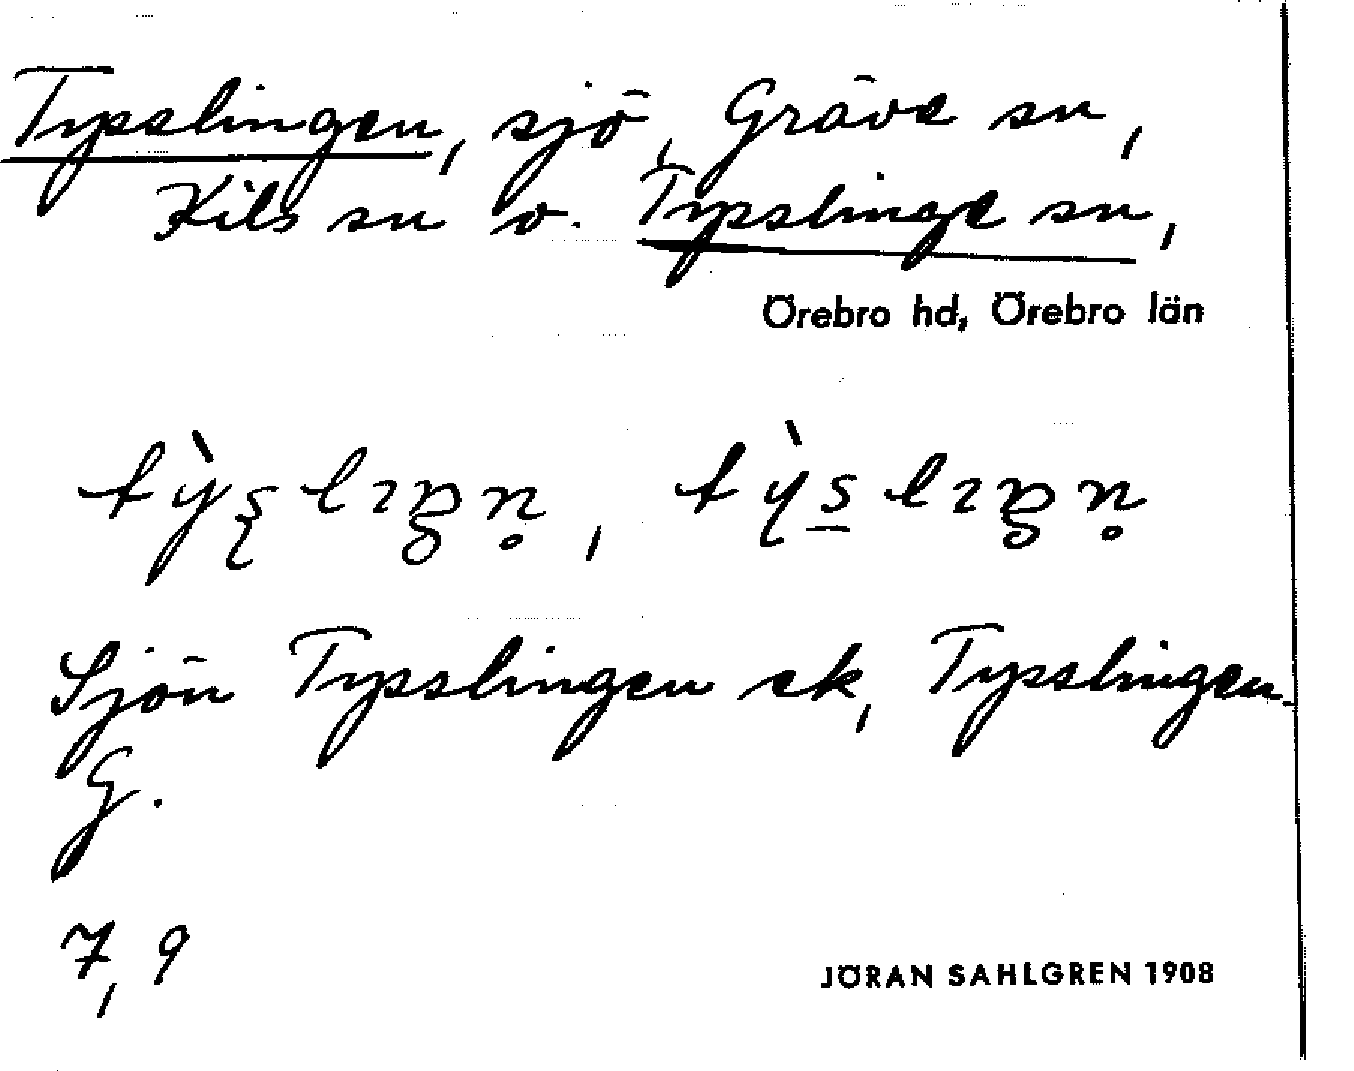 Typslingen, sjö, Gräve sn,
Kils sn o. Typslinge sn,
Örebro hd, Örebro län
Sjön Typsslingen ek, Typsslingen
G.
7, 9
JÖRAN SAHLGREN 1908